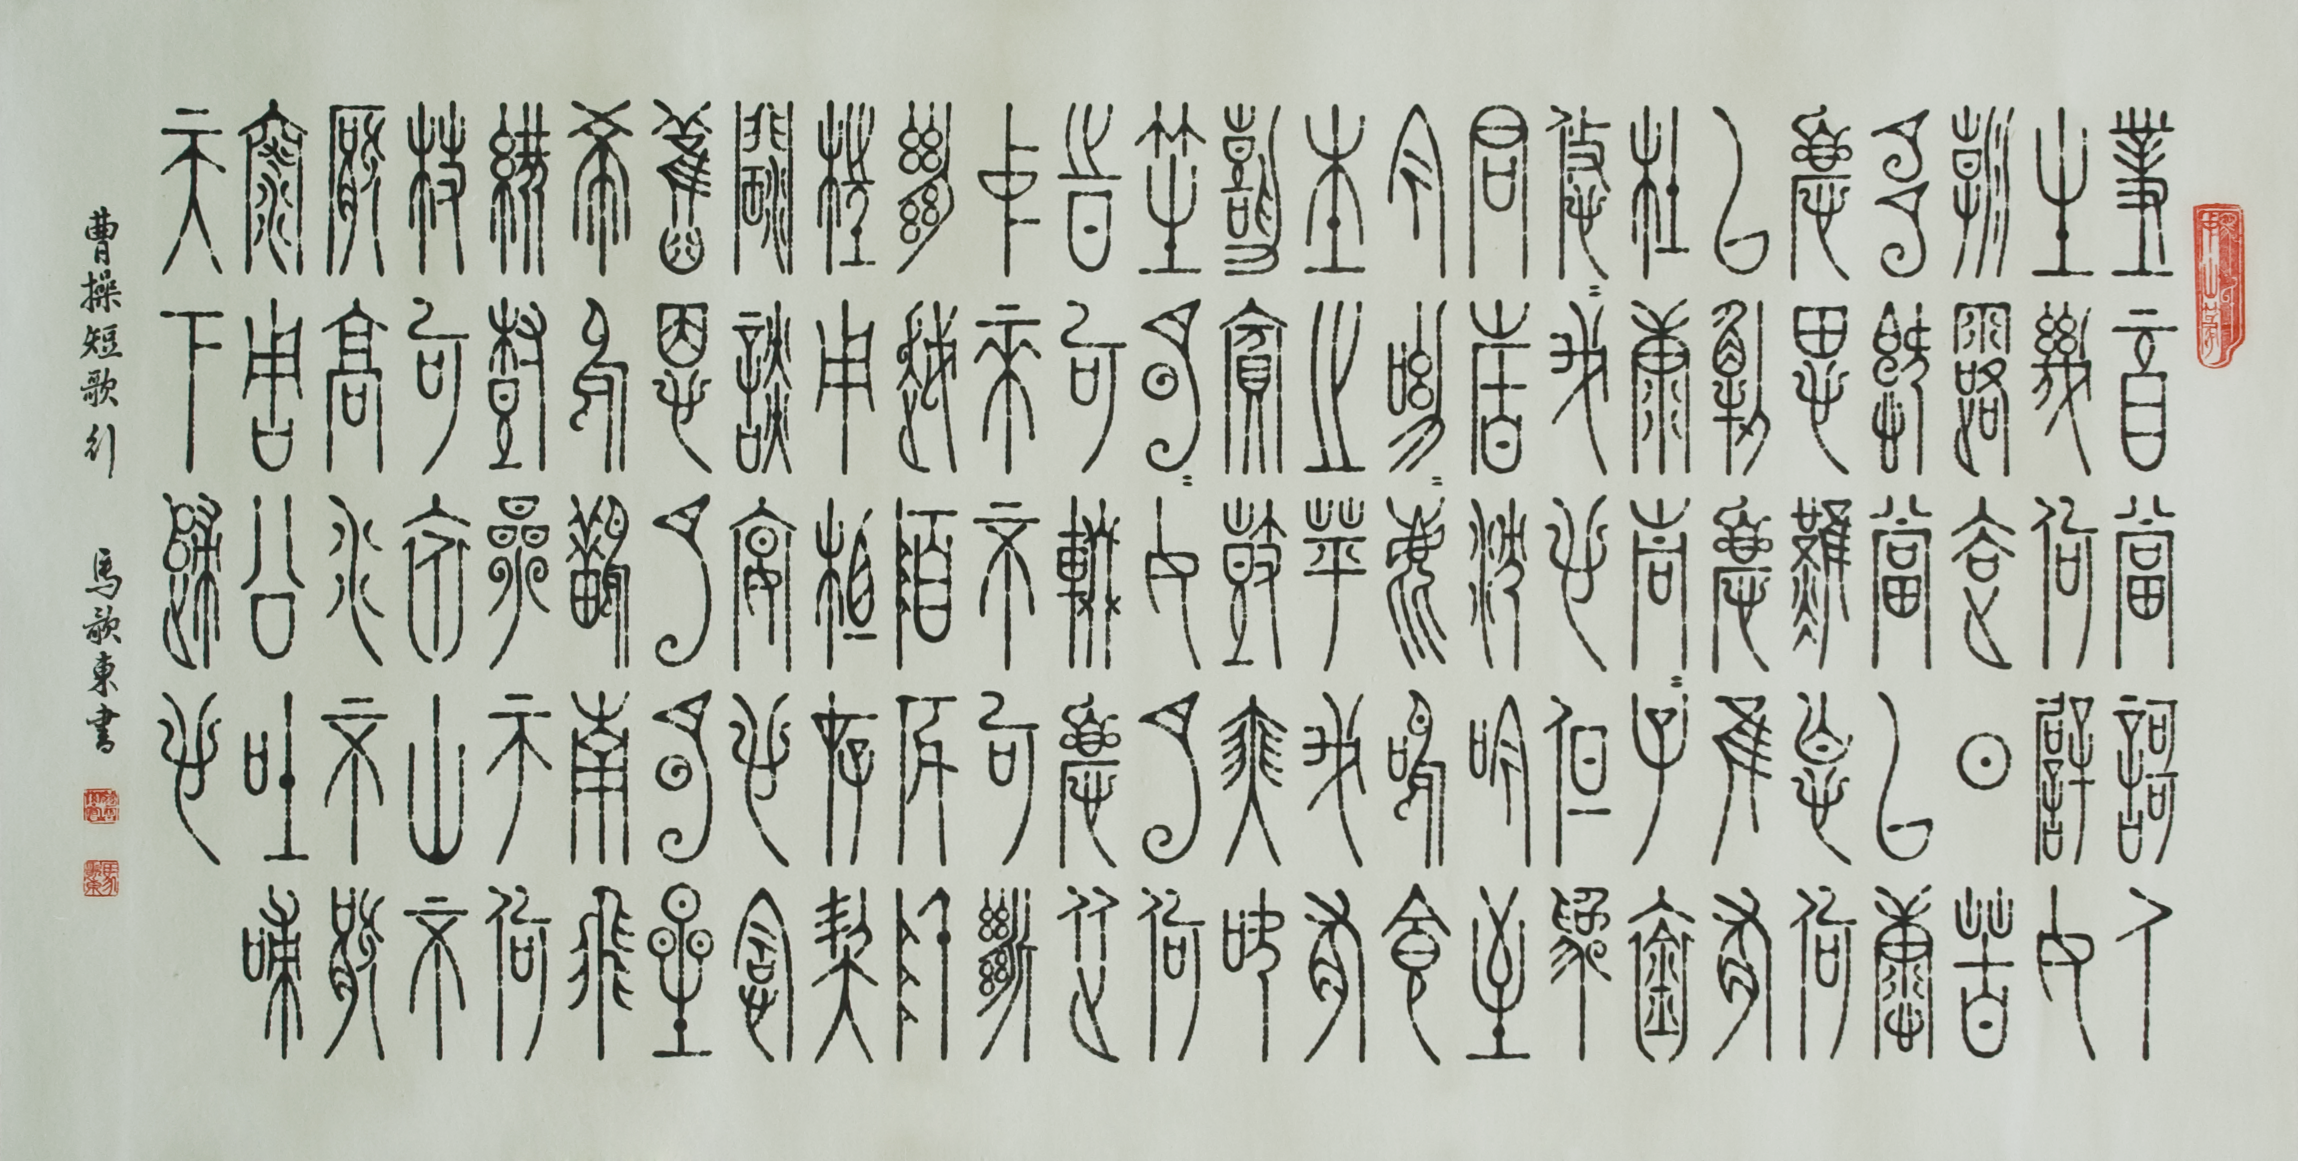 對酒當歌人
生幾何譬如
朝露去日苦
多慨當以慷
憂思難忘何
以解憂唯有
杜康青〻子衿
悠〻我心但為
君故沉吟至
今呦〻鹿鳴食
野之苹我有
嘉賓鼓瑟吹
笙明〻如月何
時可掇憂從
中來不可斷
絕越陌度阡
枉用相存契
闊談宴心念
舊恩月明星
稀烏鵲南飛
繞樹三匝何
枝可依山不
厭高水不厭
深周公吐哺
天下歸心
曹操短歌行 馬歌東書